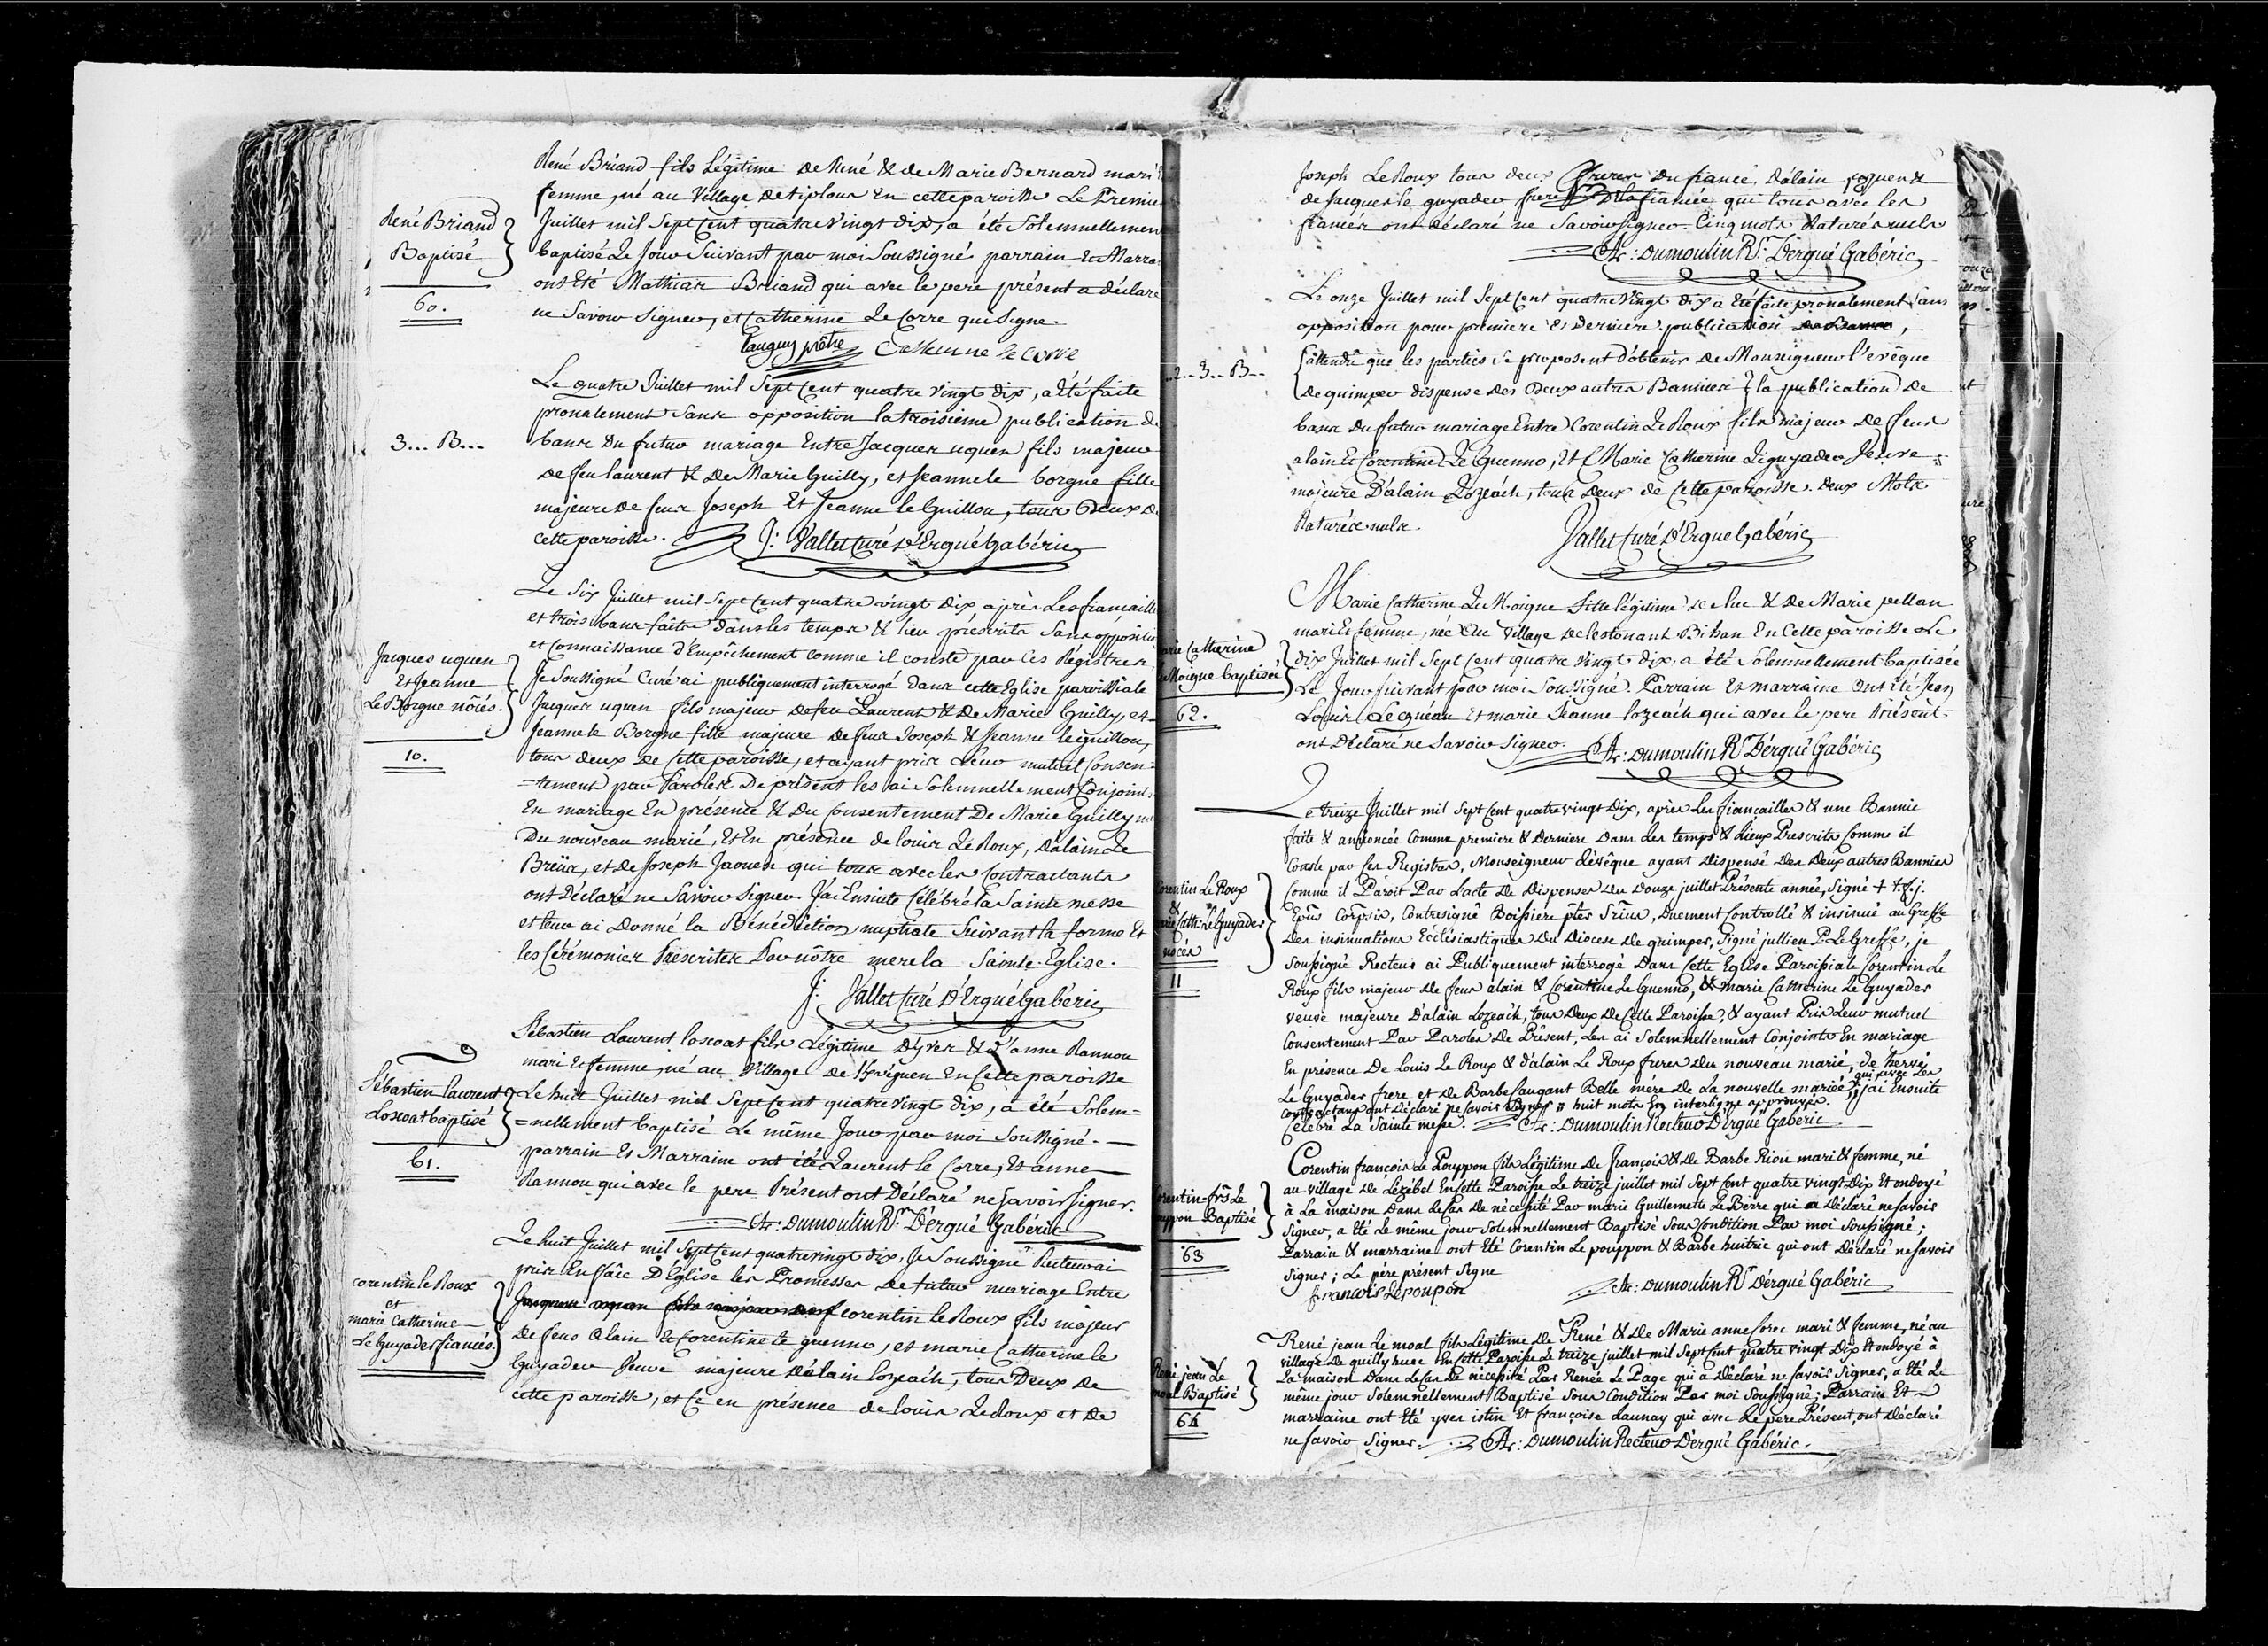 René Briand fils Légitime de René & de Marie Bernard mari
femme, né au Village de tiplous en cette paroisse Le Premier
Juillet mil Sept Cent quatre Vingt dix, a été Solemnellement
baptisé Le Jour Suivant par moi Soussigné parrain et Marra
ont Eté Mathias Briand qui avec le pere présent a déclare
ne Savoir Signer, et Catherine Le Corre qui Signe.
René Briand
Baptisé
60.
Tanguy prêtre Catherinne le corre
Le quatre Juillet mil Sept Cent quatre Vingt dix, a été faite
pronalement Sans opposition la troisième publication de
bans du futur mariage Entre Jacques uguen fils majeur
de feu laurent & de Marie Guilly, et Jeanne le borgne fille
majeure de feus Joseph Et Jeanne le Guillou, tous Deux de
cette paroisse. J: Vallet Curé d'Ergué Gabéric
3... B...
Le Six Juillet mil Sept Cent quatre vingt dix après Les fiancaille
et trois bans faits dans les temps & lieu préscrits Sans oppositio
et Connaissance d'Empêchement comme il conste par les Registres,
Je Soussigné Curé ai publiquement interrogé dans cette Eglise paroissiale
Jacques uguen fils majeur de feu Laurent & de Marie Guilly, et
Jeanne le Borgne fille majeure de feus Joseph & Jeanne le guillou,
tous deux de Cette paroisse, et ayant pris Leur mutuel Consen-
=tement par Paroles De présent les ai Solemnellement Conjoints
En mariage En présence & Du Consentement De Marie Guilly
Du nouveau marié, Et En présence de louis Le Roux, d'alain Le
Breüs, et de Joseph Jaouen qui tous avec les Contractants
ont Déclaré ne Savoir Signer. J'ai Ensuite Célébré la Sainte messe
et leur ai Donné la Bénédiction nuptiale Suivant la forme Et
les Cérémonies Prescrites Par nôtre mere la Sainte Eglise.
J: Vallet Curé D'Ergué Gabéric
Jacques uguen
Et Jeanne
Le Borgne nôcés.
10.
Sébastien Laurent loscoat fils Légitime D'yves & D'anne Rannou
mari Et femme, né au Village de en Cette paroisse
Le huit Juillet mil Sept Cent quatre Vingt dix, a été Solem=
=nellement baptisé Le même Jour par moi Soussigné.
parrain Et Marraine ont été Laurent le Corre, Et anne
Rannou qui avec le pere Présent ont Déclaré ne Savoir Signer.
Ar: Dumoulin Rr. D'ergué Gabéric
Sébastien Laurent
Loscoat baptisé
61.
Le huit Juillet mil Sept Cent quatre vingt dix, Je Soussigné Recteur ai
pris En fâce D'Eglise les Promesses de futur mariage Entre
Jacques uguen fils majeur de f corentin le Roux fils majeur
de feus Alain & Corentine le guenno, et marie Catherine le
Guyader Veuve majeure d'alain lozeach, tous Deux de
cette paroisse, et Ce en présence de louis Le Roux et de
corentin le Roux
et
marie Catherine
Le Guyader fiancés.
Joseph Le Roux tous deux freres du fiancé, d'alain &
de Jacques le guyader frere de la fiancée qui tous avec les
fiancés ont déclaré ne Savoir Signer. Cinq mots Raturés nuls
Ar: Dumoulin Rr. D'ergué Gabéric
Le onze Juillet mil Sept Cent quatre Vingt dix a été faite pronalement Sans
opposition pour premiere et derniere publication de Bannie,
attendu que les parties se proposent d'obtenir de Monseigneur l'evêque
de quimper dispense des Deux autres Bannies la publication De
bans du futur mariage Entre Corentin Le Roux fils majeur de feus
alain Et Corentine Le Guenno, Et Marie Catherine Le guyader Veuve
majeure D'alain Lozeach, tous deux de Cette paroisse. deux Mots
Raturés nuls.
Vallet Curé d'Ergué Gabéric
2.. 3.. B..
Marie Catherine Le Moigne fille légitime de luc & de Marie pellan
mari Et femme, née au village de lestonant Bihan En Cette paroisse Le
dix Juillet mil Sept Cent quatre Vingt dix, a été Solemnellement baptisée
Le Jour suivant par moi Soussigné. Parrain Et marraine ont été Jean
Louis Lequéau Et marie Jeanne lozeach qui avec le pere Présent
ont Déclaré ne Savoir Signer. Ar: Dumoulin Rr D'ergué Gabéric
arie Catherine
Moigne baptisée
62.
Le treize Juillet mil Sept Cent quatre vingt Dix, après Les fiançailles & une Bannie
faite & annoncée Comme premiere & Derniere Dans Les temps & Lieux Prescrits Comme il
Conste par les Registres, Monseigneur L'évêque ayant Dispensé Des Deux autres Bannies
Comme il Paroit Par L'acte de Dispenses du Douze juillet Présente année, Signé + t.f.j.
Epûs Corpsis, Contresigné Boissiere ptre Srius, Duement Controllé & insinué au Greffe
Des insinuations Ecclésiastiques Du Diocese De quimper, Signé jullien P. Le Greffe, je
Soussigné Recteur ai Publiquement interrogé Dans Cette Eglise Paroissiale Corentin Le
Roux fils majeur de feus alain & Corentine Le Guenno, & marie Catherine Le Guyader
veuve majeure D'alain Lozeach, tous Deux de Cette Paroisse, & ayant Pris Leur mutuel
Consentement Par Paroles De Présent, Les ai Solemnellement Conjoints En mariage
En présence De Louis Le Roux & d'alain Le Roux freres du nouveau marié, de hervé
Le Guyader frere et de Barbe Laugant Belle mere De La nouvelle mariée, qui avec Les
contractans ont Déclaré ne savoir Signer = huit mots En interligne approuvés. j'ai Ensuite
Célébré La Sainte messe. Ar: Dumoulin Recteur D'Ergué Gabéric
orentin Le Roux
&
rie Cath: Le Guyader
nôcés
11
Corentin françois Le Pouppon fils Légitime de françois & de Barbe Riou mari & femme, né
au village De Lézébel En Cette Paroisse Le treize juillet mil Sept Cent quatre vingt Dix Et ondoyé
à La maison Dans Le Cas De nécessité Par marie Guillemette Le Berre qui a Déclaré ne savoir
Signer, a été Le même jour Solemnellement Baptisé Sous Condition Par moi Soussigné;
Parrain & marraine ont été Corentin Le pouppon & Barbe huitric qui ont Déclaré ne Savoir
Signer; Le pére présent Signe
françois Lepoupon Ar: Dumoulin Rr D'ergué Gabéric
orentin frs Le
uppon Baptisé
63
René jean Le moal fils Légitime De René & De Marie anne Corre mari & femme, né au
village De quilly huec En Cette Paroisse Le treize juillet mil Sept Cent quatre vingt Dix Et ondoyé à
La maison Dans Le Cas De nécessité Par Renée Le Page qui a Déclaré ne savoir Signer, a été Le
même jour Solemnellement Baptisé Sous Condition Par moi Soussigné; Parrain Et
marraine ont Eté yves istin Et françoise Launay qui avec Le pere Présent, ont Déclaré
ne savoir Signer. Ar: Dumoulin Recteur D'ergué Gabéric.
René jean Le
moal Baptisé
64